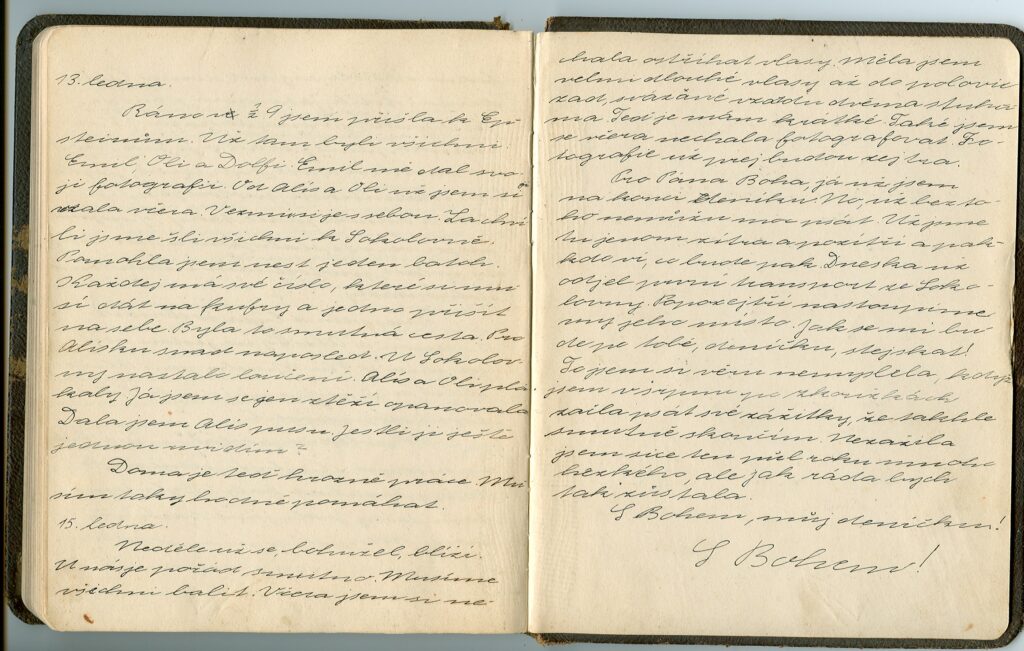 13. ledna.
Ráno v ½ 9 jsem přišla k Ep-
steinům. Už tam byli všichni
Emil, Oli a Dolfi. Emil mě dal svo-
ji fotografii. Od Alis a Oli už jsem si
vzala včera. Vezmu si je s sebou. Za chví-
li jsme šli všichni k Sokolovně.
Pomohla jsem nest jeden batoh.
Každej má své číslo, které si musí
si dát na kufry a jedno přišít
na sebe. Byla to smutná cesta. Pro
Alisku snad naposled. U Sokolov-
ny nastalo loučení. Alis a Oli pla-
kaly. Já jsem se jen ztěží opanovala
Dala jsem Alis pusu. Jestli ji ještě
jednou uvidím?
Doma je teď hrozně práce. Mu-
sím taky hodně pomáhat.
15. ledna.
Neděle už se, bohužel, blíží.
U nás je pořád smutno. Musíme
všichni balit. Včera jsem si ne-
chala ostříhat vlasy. Měla jsem
velmi dlouhé vlasy až do polovic
zad, svázané vzadu dvěma stuhá-
ma. Teď je mám krátké. Také jsem
se včera nechala fotografovat. Fo-
tografie už prej budou zejtra.
Pro Pána Boha, já už jsem
na konci deníku. No, už bez to-
ho nemůžu moc psát. Už jsme
tu jenom zítra a pozítří a pak
kdo ví, co bude pak. Dneska už
odjel první transport ze Soko-
lovny. Popozejtří nastoupíme
my jeho místo. Jak se mi bu-
de po tobě, deníčku, stejskat!
To jsem si věru nemyslela, když
jsem v srpnu po zkouškách
začla psát své zážitky, že takhle
smutně skončím. Nezažila
jsem sice ten půl roku mnoho
hezkého, ale jak ráda bych
tak zůstala.
S Bohem, můj deníčku!
S Bohem!